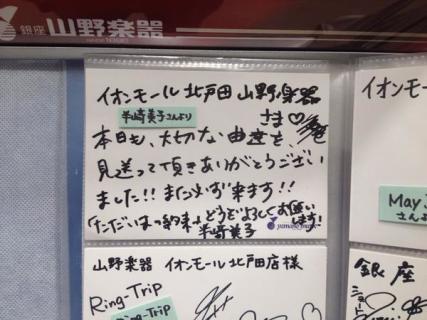 銀座 山野楽器
イオンモール北戸田 山野楽器
さま♡
半崎美子さんより
本日も、大切な曲達を、
見送って頂きありがとうござい
ました!! また必ず来ます!!
「ただいまの約束」どうぞよろしくお願い
します!
半崎美子
yamano music
山野楽器 イオンモール北戸田店様
Ring-Trip
Ring-Trip
イオンモ
May J
さんよ
銀座